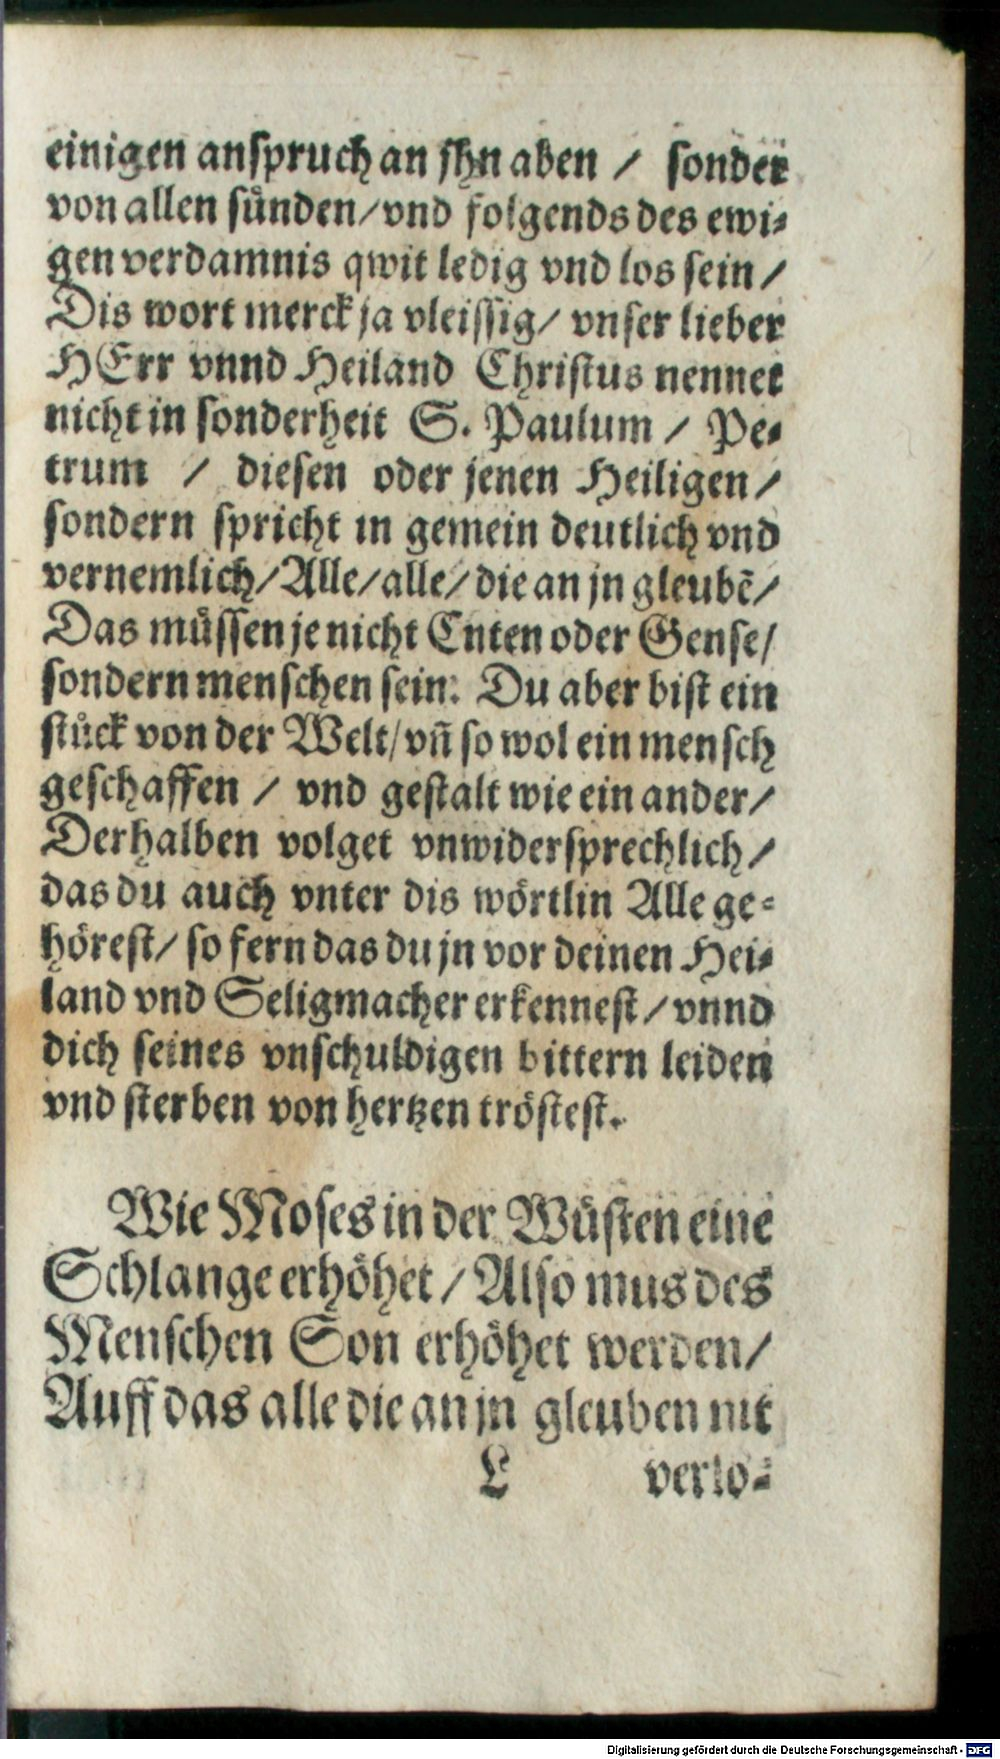 einigen anspruch an jhn aben / sonder
von allen sünden/vnd folgends des ewi-
gen verdamnis qwit ledig vnd los sein /
Dis wort merck ja vleissig/ vnser lieber
HErr vnnd Heiland Christus nennet
nicht in sonderheit S. Paulum / Pe-
trum / diesen oder jenen Heiligen /
sondern spricht in gemein deutlich vnd
vernemlich/Alle/alle/die an jn gleubē/
Das müssen je nicht Enten oder Gense/
sondern menschen sein: Du aber bist ein
stück von der Welt/vñ so wol ein mensch
geschaffen / vnd gestalt wie ein ander/
Derhalben volget vnwidersprechlich/
das du auch vnter dis wörtlin Alle ge-
hörest/ so fern das du jn vor deinen Hei-
land vnd Seligmacher erkennest/vnnd
dich seines vnschuldigen bittern leiden
vnd sterben von hertzen tröstest.
Wie Moses in der Wüsten eine
Schlange erhöhet / Also mus des
Menschen Son erhöhet werden/
Auff das alle die an jn gleuben nit
L verlo-
Digitalisierung gefördert durch die Deutsche Forschungsgemeinschaft - DFG